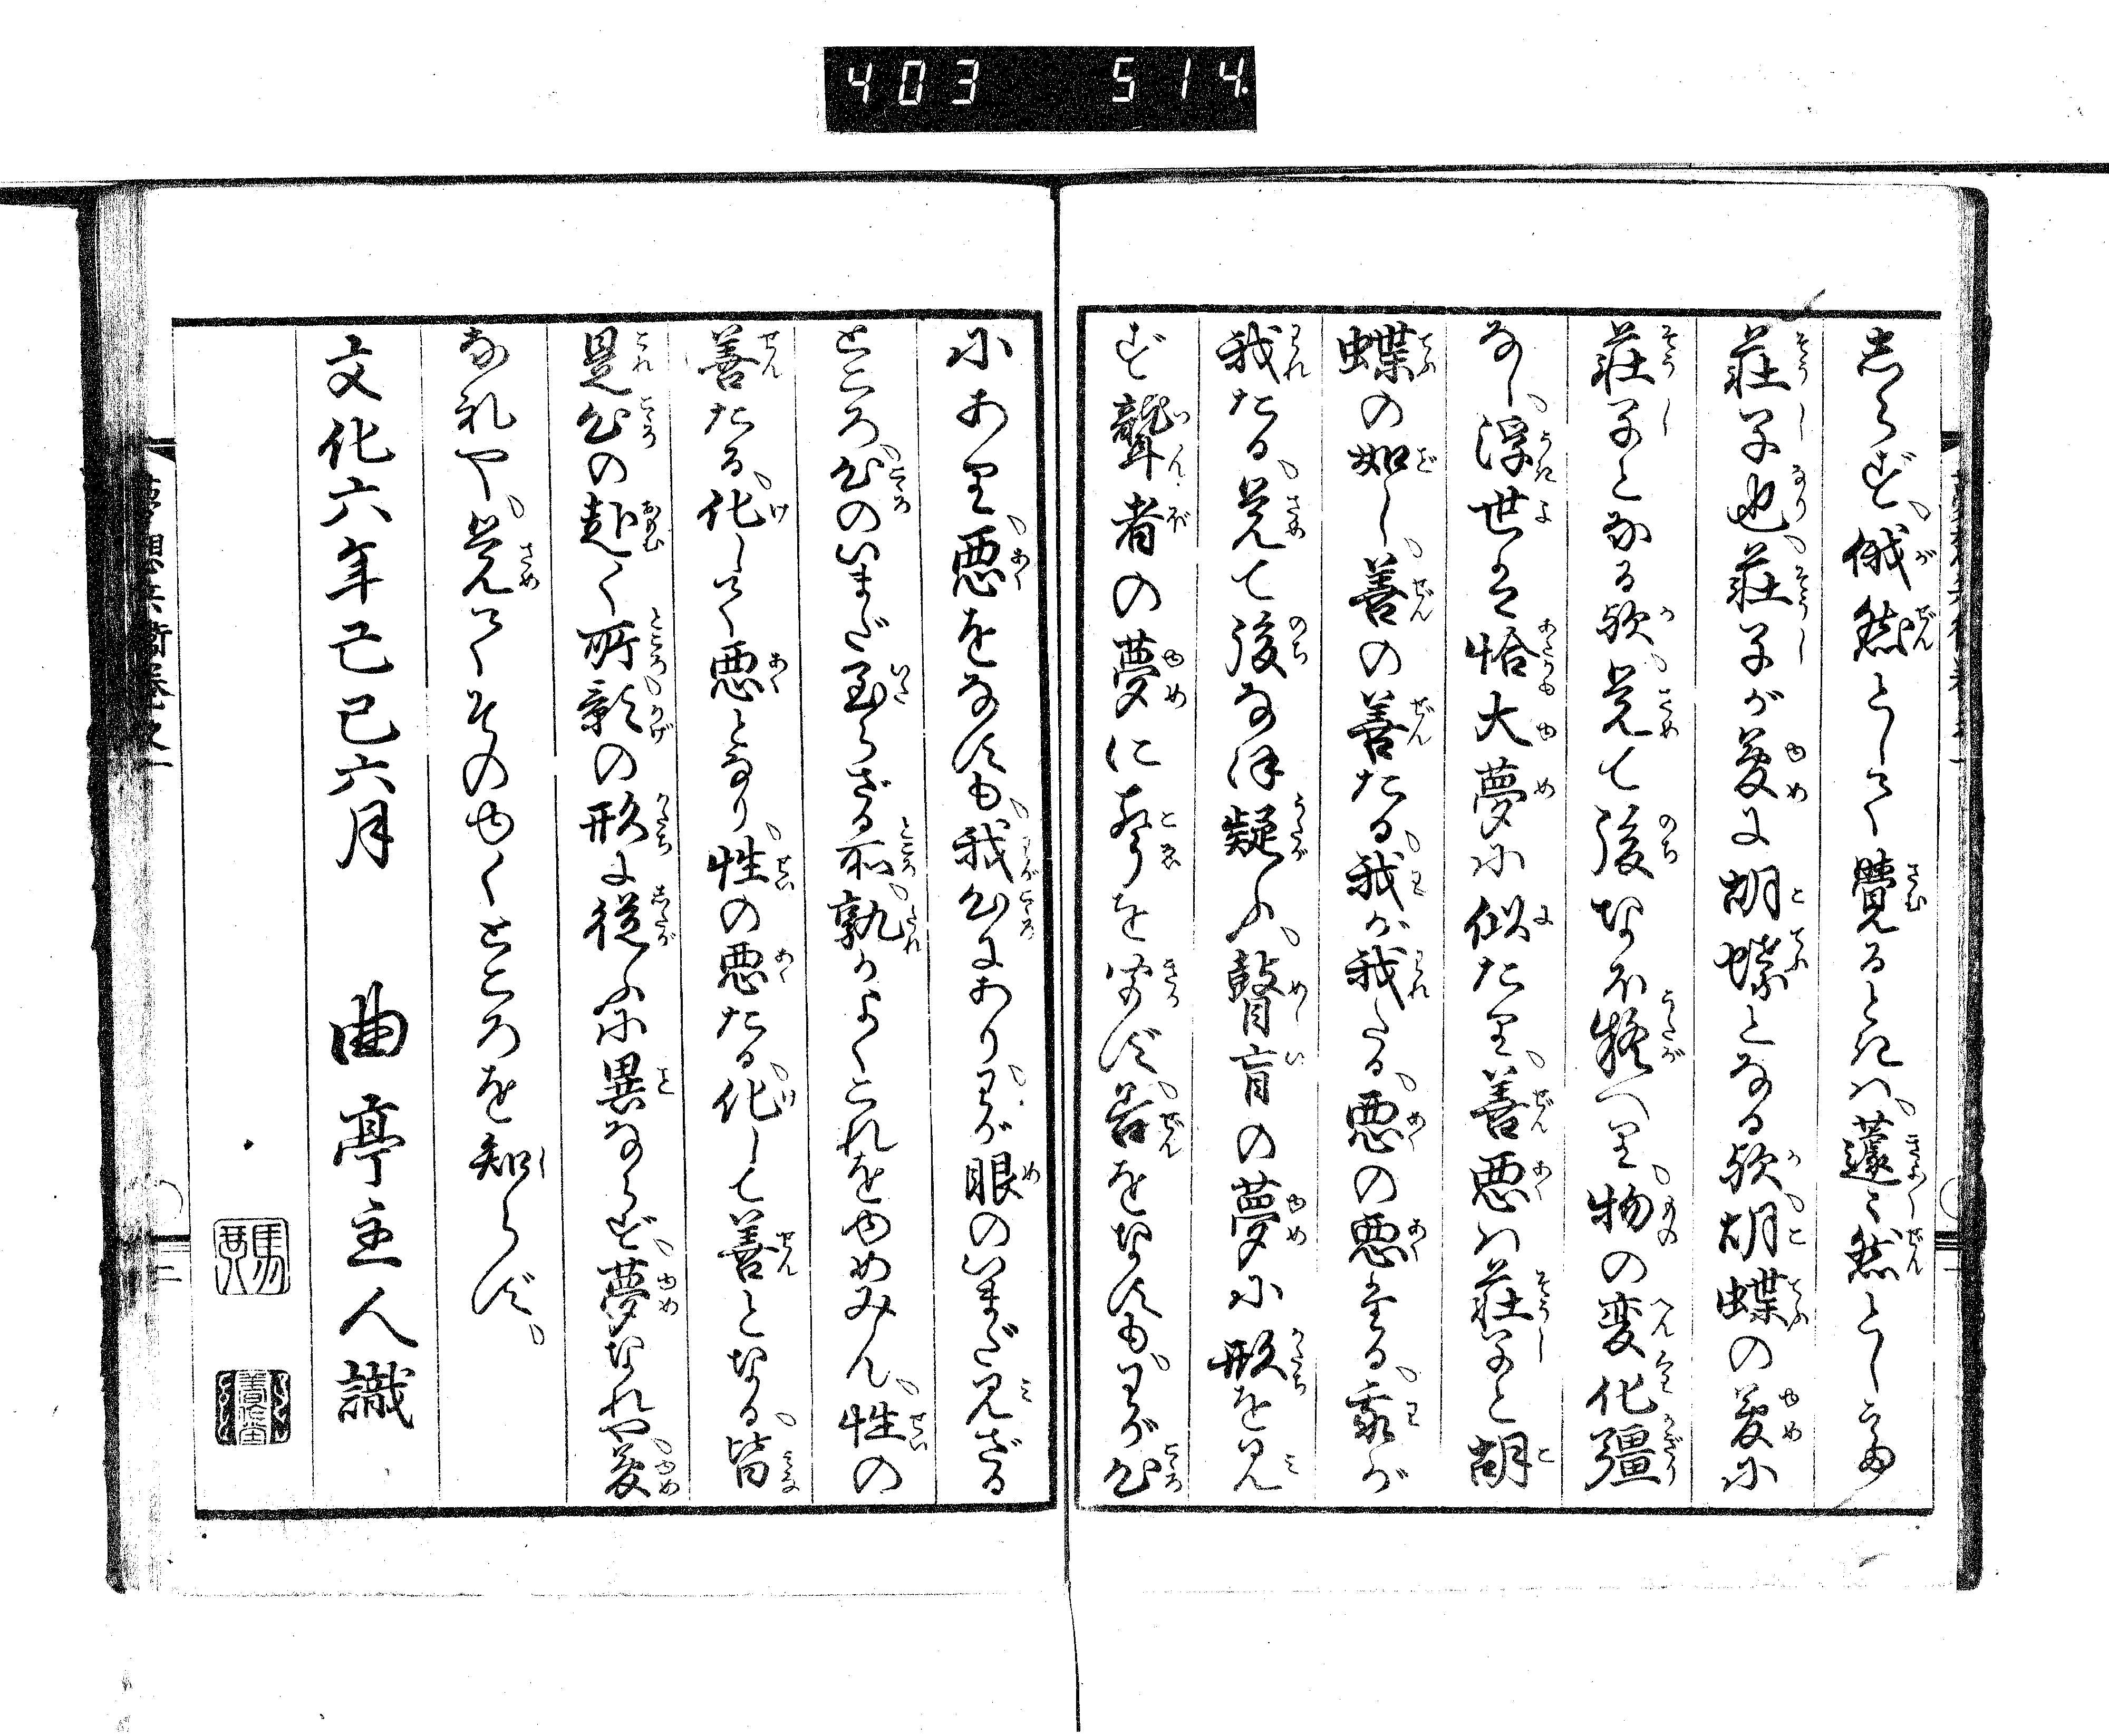 403 514
志らず、俄然として覺るときは、蘧々然として
荘子也、荘子が夢に胡蝶となる歟、胡蝶の夢に
荘子となる歟、覚て後なほ疑へり、物の変化彊
なし、浮世は恰大夢に似たり、善悪は荘子と胡
蝶の如し、善の善たる、我が我たる、悪の悪なる、我が
我たる、覚て後なほ疑ふ、瞽盲の夢に形を見
ず聾者の夢に声を聞ず、善をなすも、わが心
にあり、悪をなすも、我心にあり、わが眼のいまだ見ざる
ところ、心のいまだ至らざる所、孰かよくこれをゆめみん、性の
善たる、化して悪となり、性の悪たる、化して善となる、皆
是心の赴く所、影の形に従ふに異ならず、夢なれや、夢
なれや、覚てそのゆくところを知らず、
文化六年己巳六月 曲亭主人識
夢想兵衛